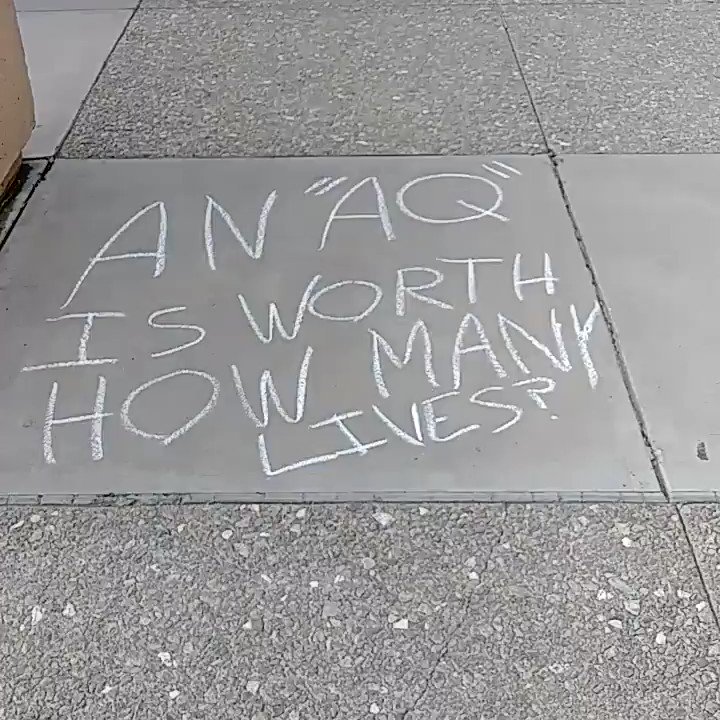 AN "AQ"
IS WORTH
HOW MANY
LIVES?